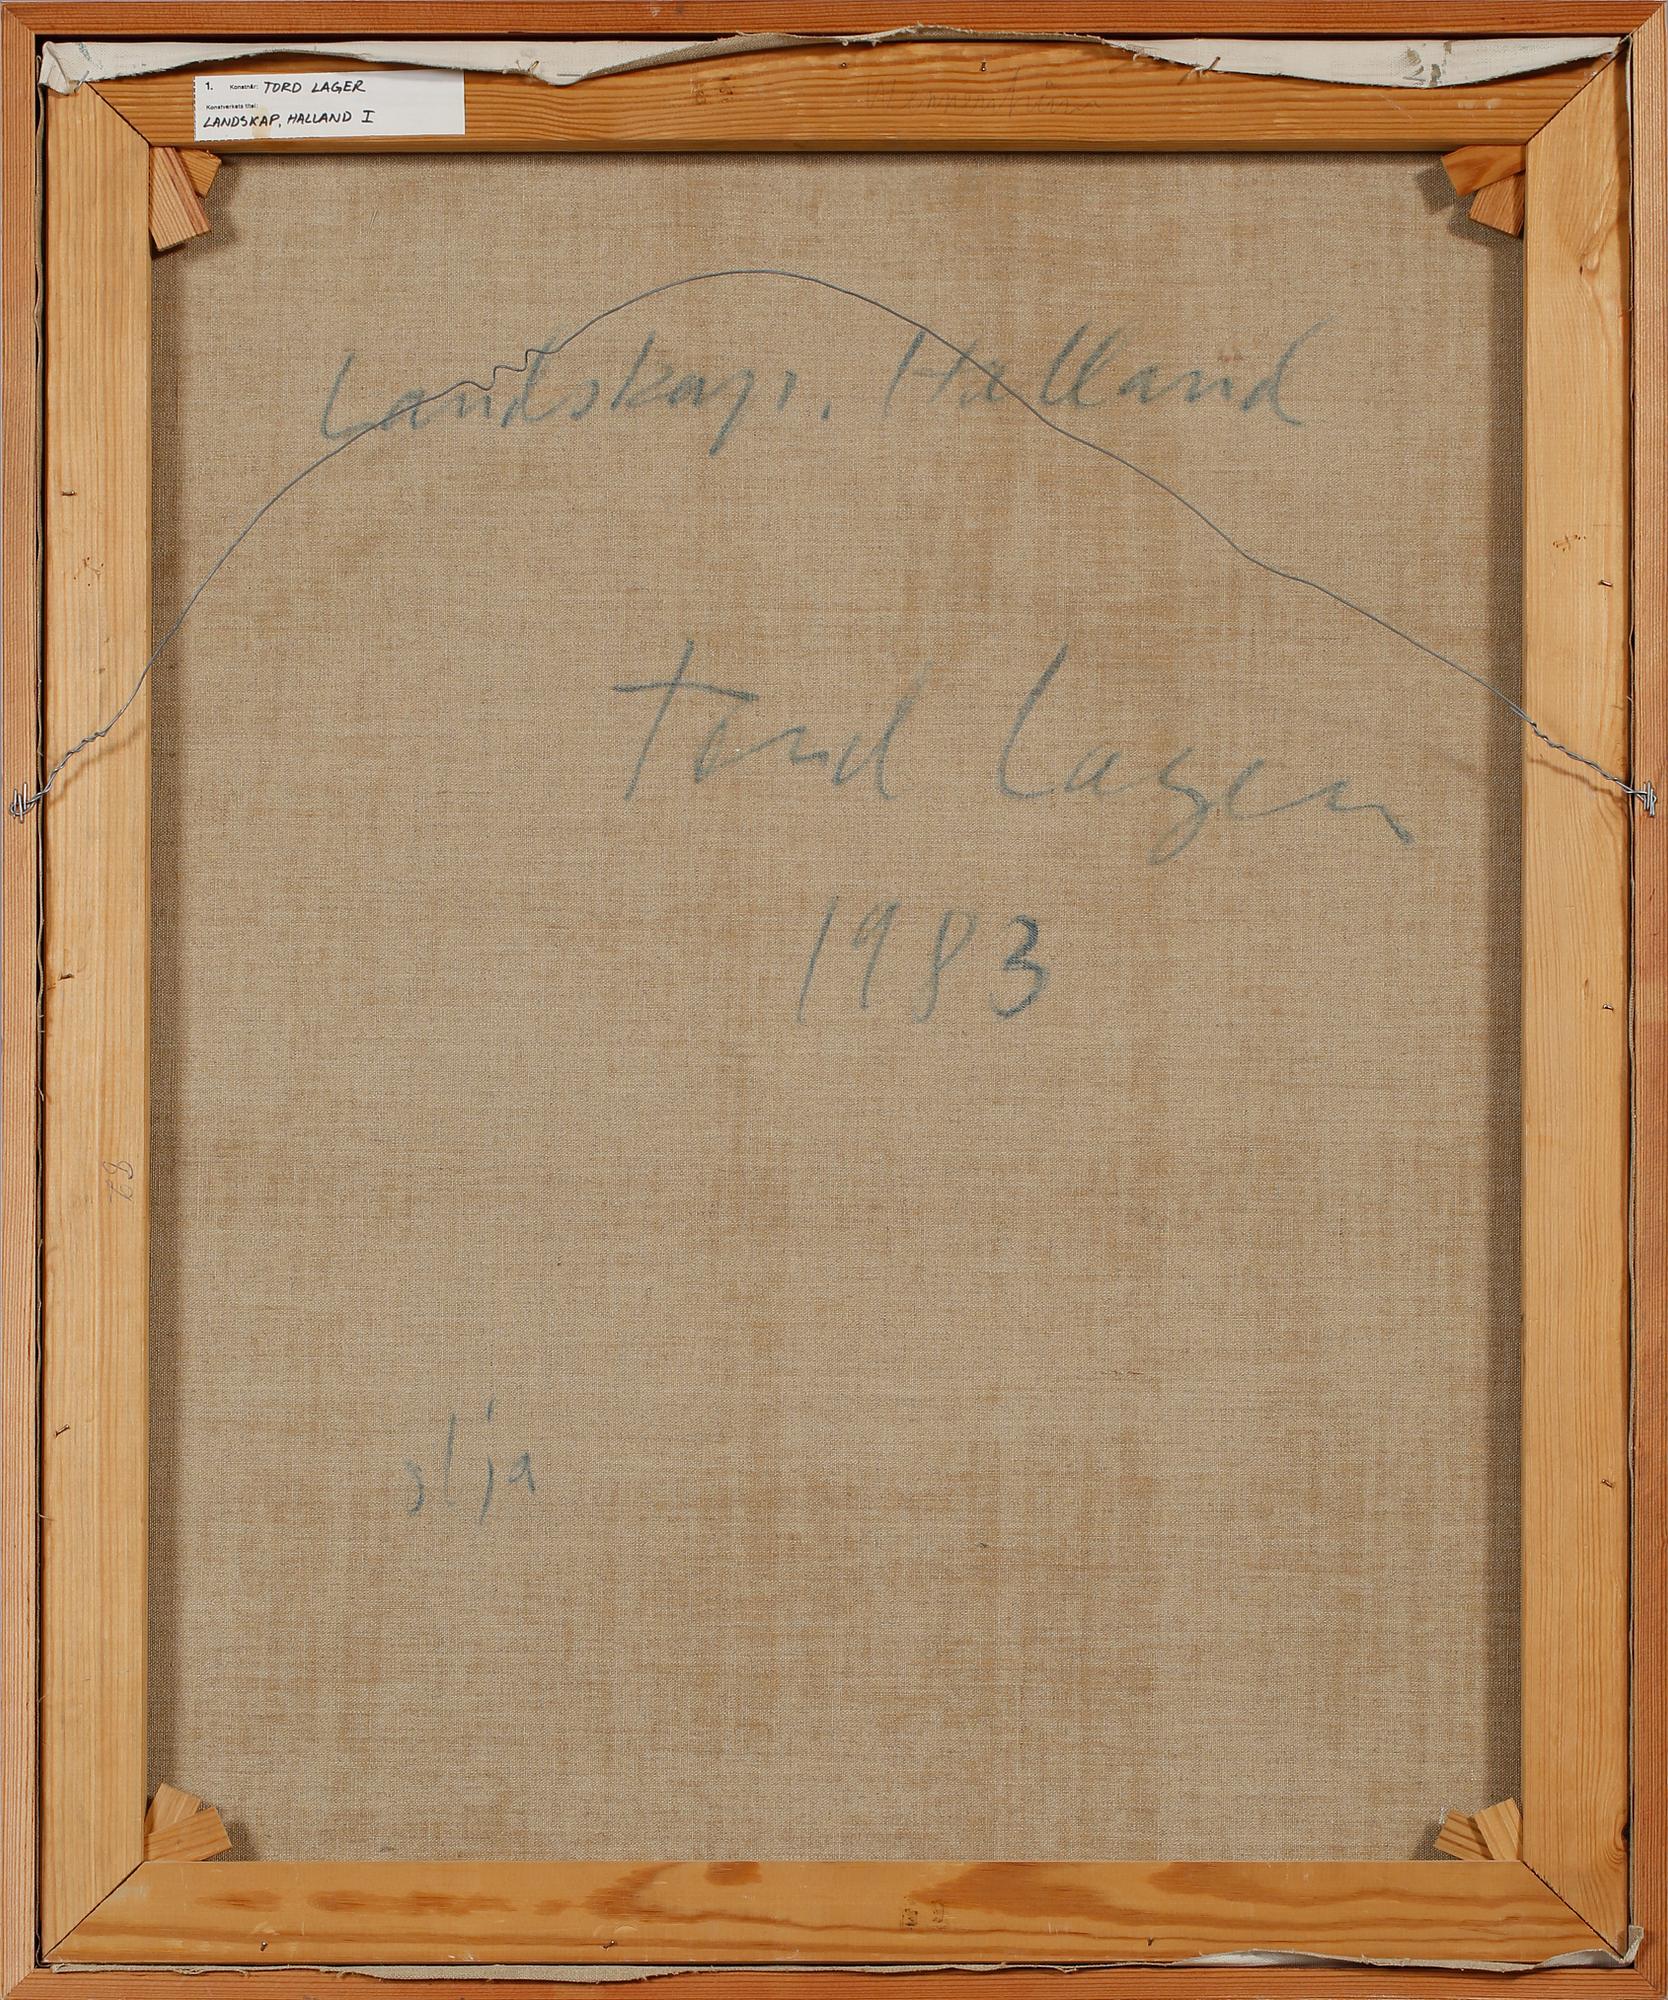 1. Konstnär: TORD LAGER
Konstverkets titel:
LANDSKAP, HALLAND I
Landskap, Halland
Tord Lager
1983
olja